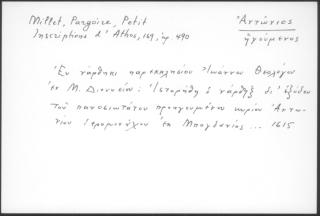 Millet, Pargoire, Petit
Inscriptions d' Athos, 169, нр. 490
Ἀντώνιος
ἡγούμενος
Ἐν νάρθηκι παρεκκλησίου Ἰωάννου Θεολόγου
ἐν Μ. Διονυσίου: Ἱστορήθη ὁ νάρθηξ δι' ἐξόδου
τοῦ πανοσιωτάτου προηγουμένου κυρίου Ἀντω-
νίου ἐκ Μπογδανίας ... 1615